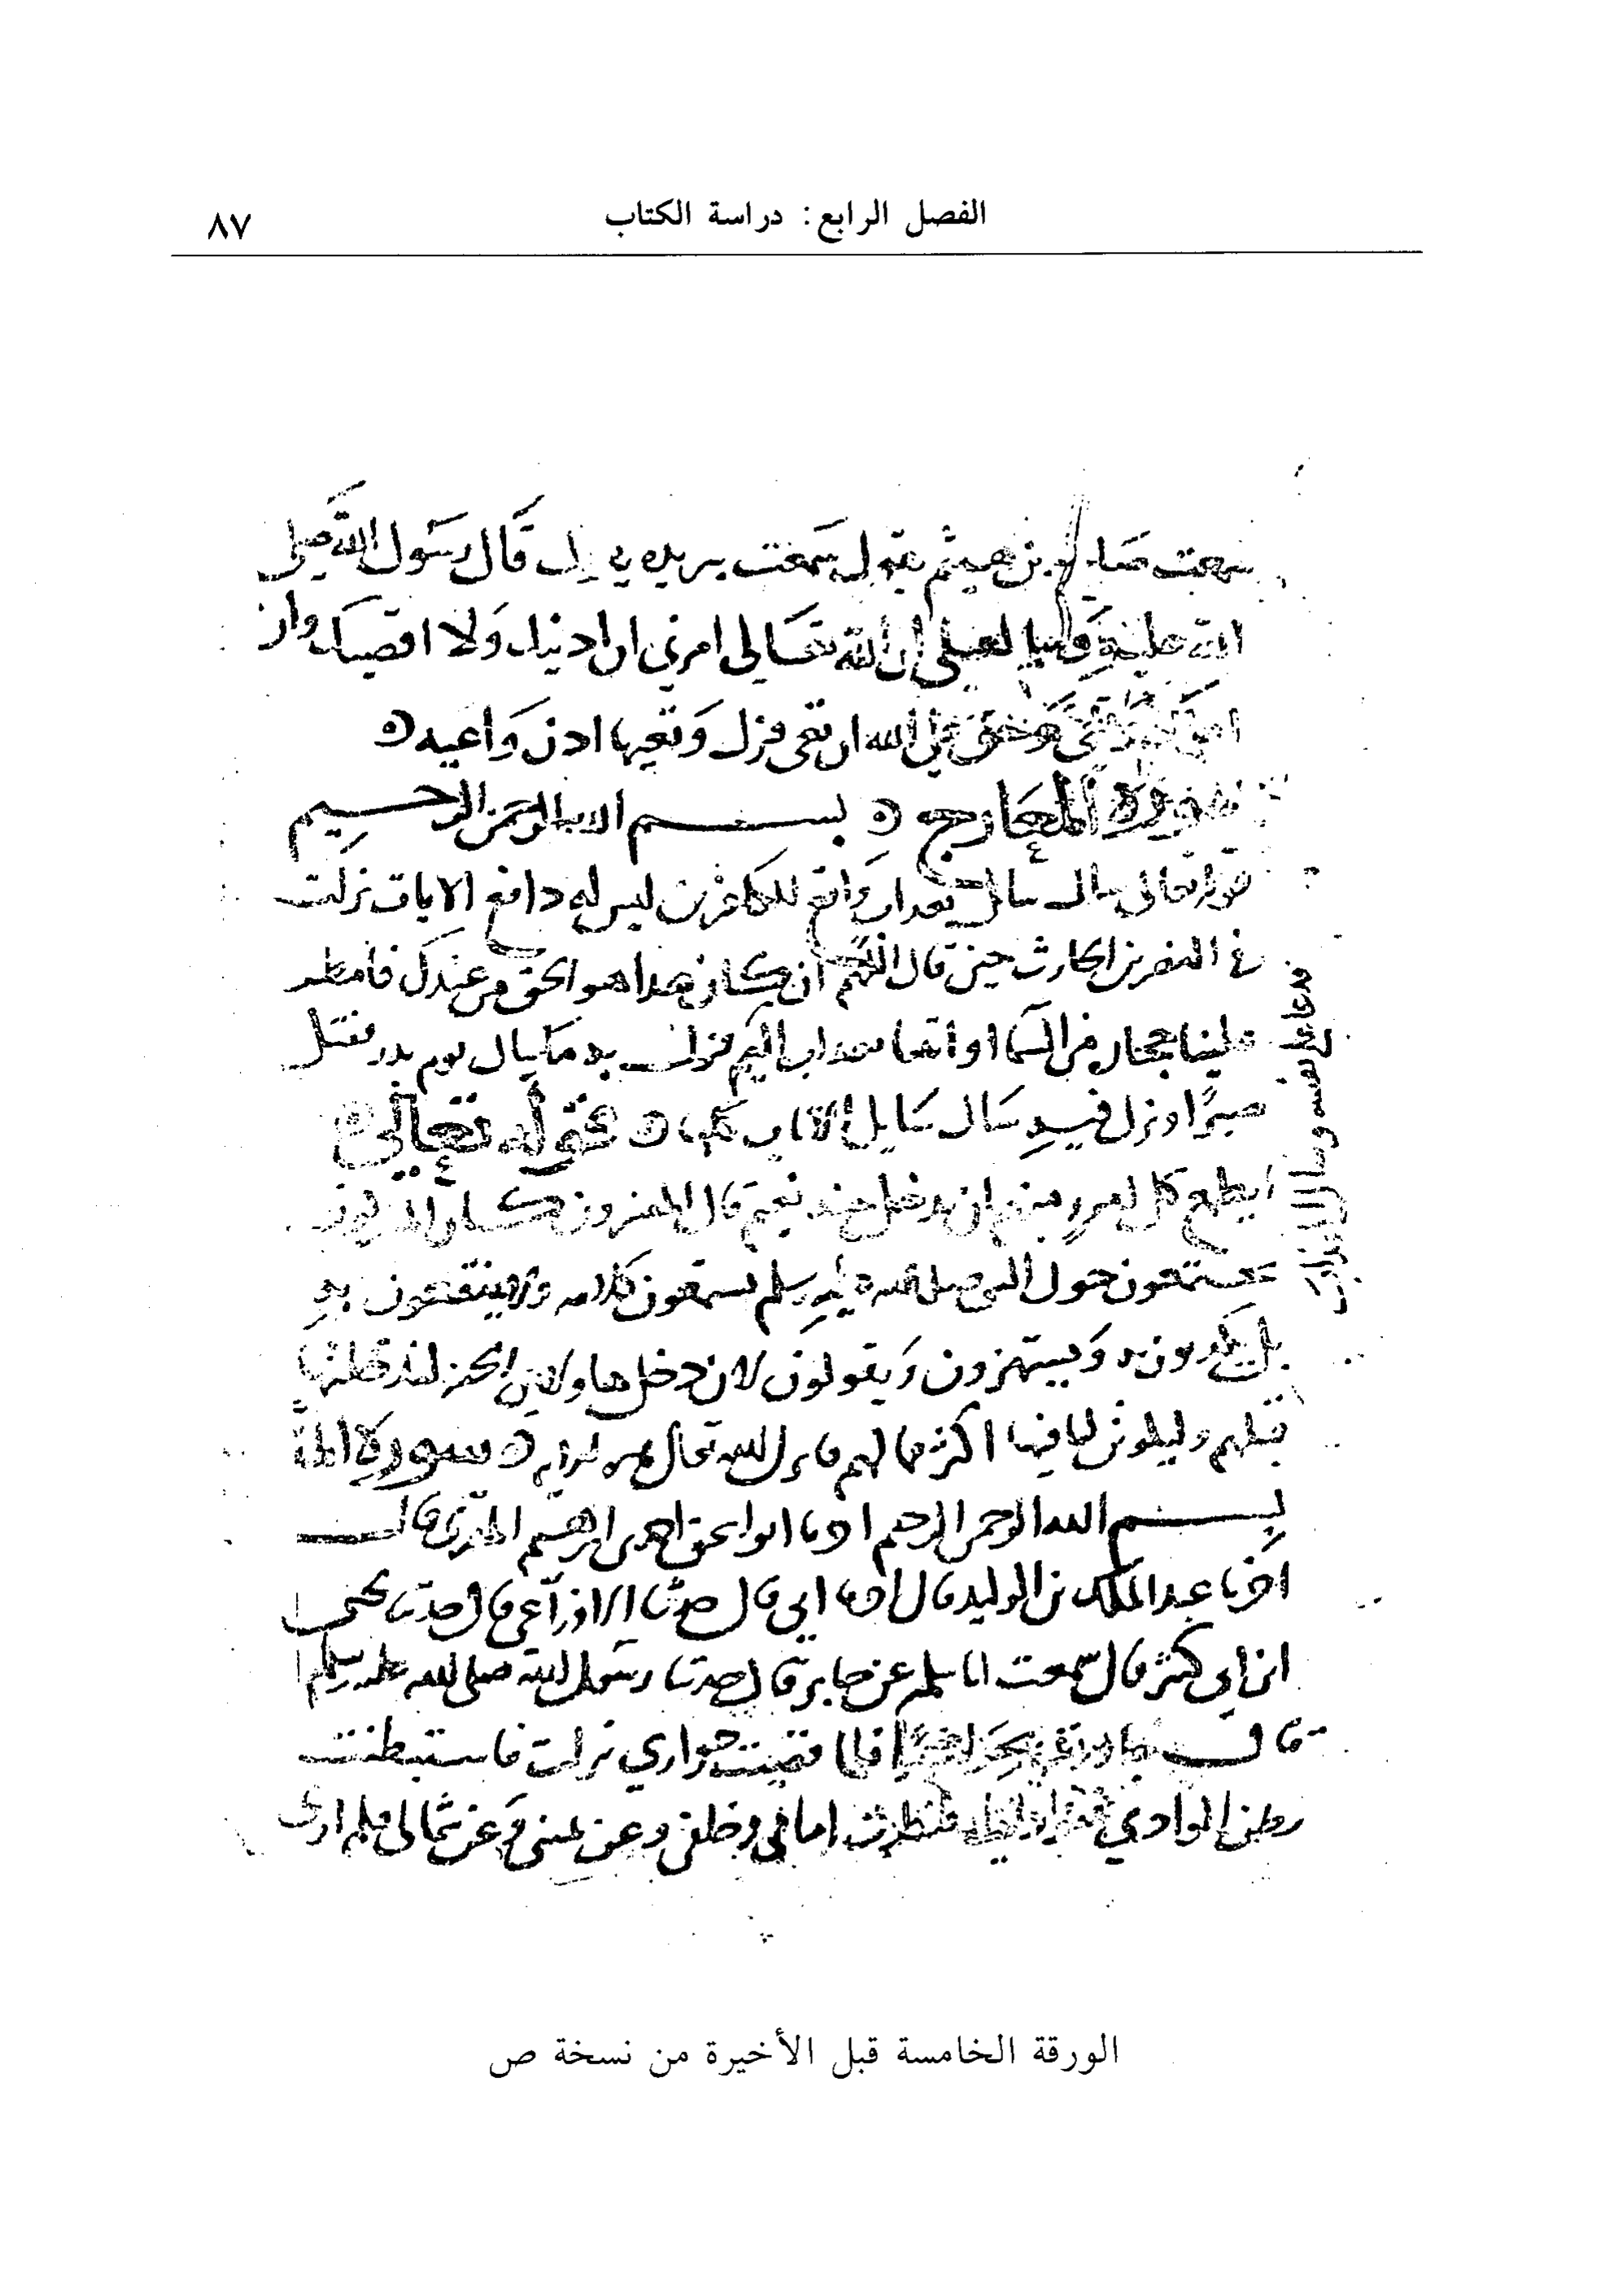 الفصل الرابع: دراسة الكتاب
٨٧
سمعت صالح بن هيثم يقول سمعت بريده يقول قال رسول الله صلى
الله عليه وسلم لعلى ان الله تعالى امرنى ان ادنيك ولا اقصيك وان
وحق على الله ان تعى فنزل وتعيها اذن واعيه
سورة المعارج بسم الله الرحمن الرحيم
قوله تعالى سال سائل بعذاب واقع للكافرين ليس له دافع الايات نزلت
فى النضر بن الحارث حين قال اللهم ان كان هذا هو الحق من عندك فامطر
علينا حجار من السما او اتنا بعذاب اليم فنزل به ما سال يوم بدر فقتل
صبرا ونزل فيه سال سايل الايات كلها قوله تعالى
ايطمع كل امرئ منهم ان يدخل جنه نعيم قال المفسرون كان المشركون
يجتمعون حول النبى صلى الله عليه وسلم يستمعون كلامه ولا ينتفعون به
بل يكذبون به ويستهزون ويقولون لان دخل هاولاى الجنه لندخلنها
قبلهم وليكونن لنا فيها اكثر مما لهم فانزل الله تعالى هذه الايه سورة المد
بسم الله الرحمن الرحيم اخبرنا ابو اسحق احمد بن ابرهيم المقرى قال
اخبرنا عبد الملك بن الوليد قال اخبرنا ابى قال حدثنا الاوزاعى قال حدثنا يحيى
ابن ابى كثير قال سمعت ابا سلمه عن جابر قال حدثنا رسول الله صلى الله عليه وسلم
قال جاورت بحراء شهرا فلما قضيت جوارى نزلت فاستبطنت
بطن الوادي فنظرت امامى وخلفى وعن يمينى وعن شمالى فلم ارى
الورقة الخامسة قبل الأخيرة من نسخة ص